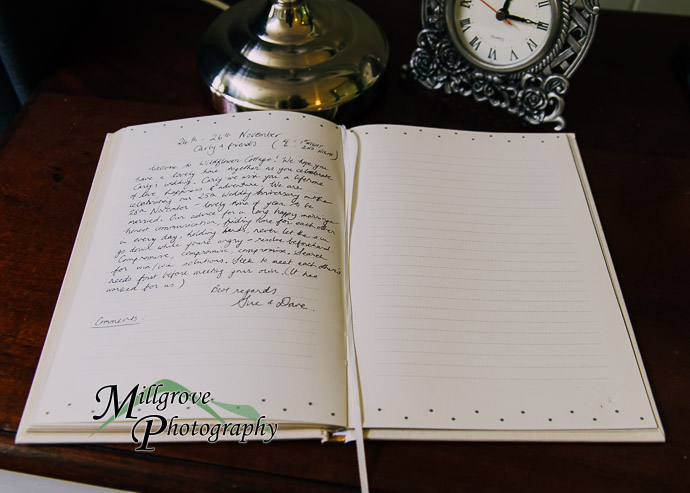 24th - 26th November
Carly & friends
Welcome to Wildflower Cottage! We hope you
have a lovely time together as you celebrate
Carly's wedding. Carly we wish you a lifetime
of love happiness & adventure. We are
celebrating our 25th Wedding Anniversary on the
28th November - lovely time of year to be
married. Our advice for a long happy marriage -
honest communication, finding time for each other
in every day, holding hands, never let the sun
go down while you're angry - resolve beforehand
Compromise, compromise, compromise. Search
for win/win solutions. Seek to meet each other's
needs first before meeting your own. (It has
worked for us.)
Best regards
Sue & Dave.
Comments:
Millgrove
Photography
Quartz